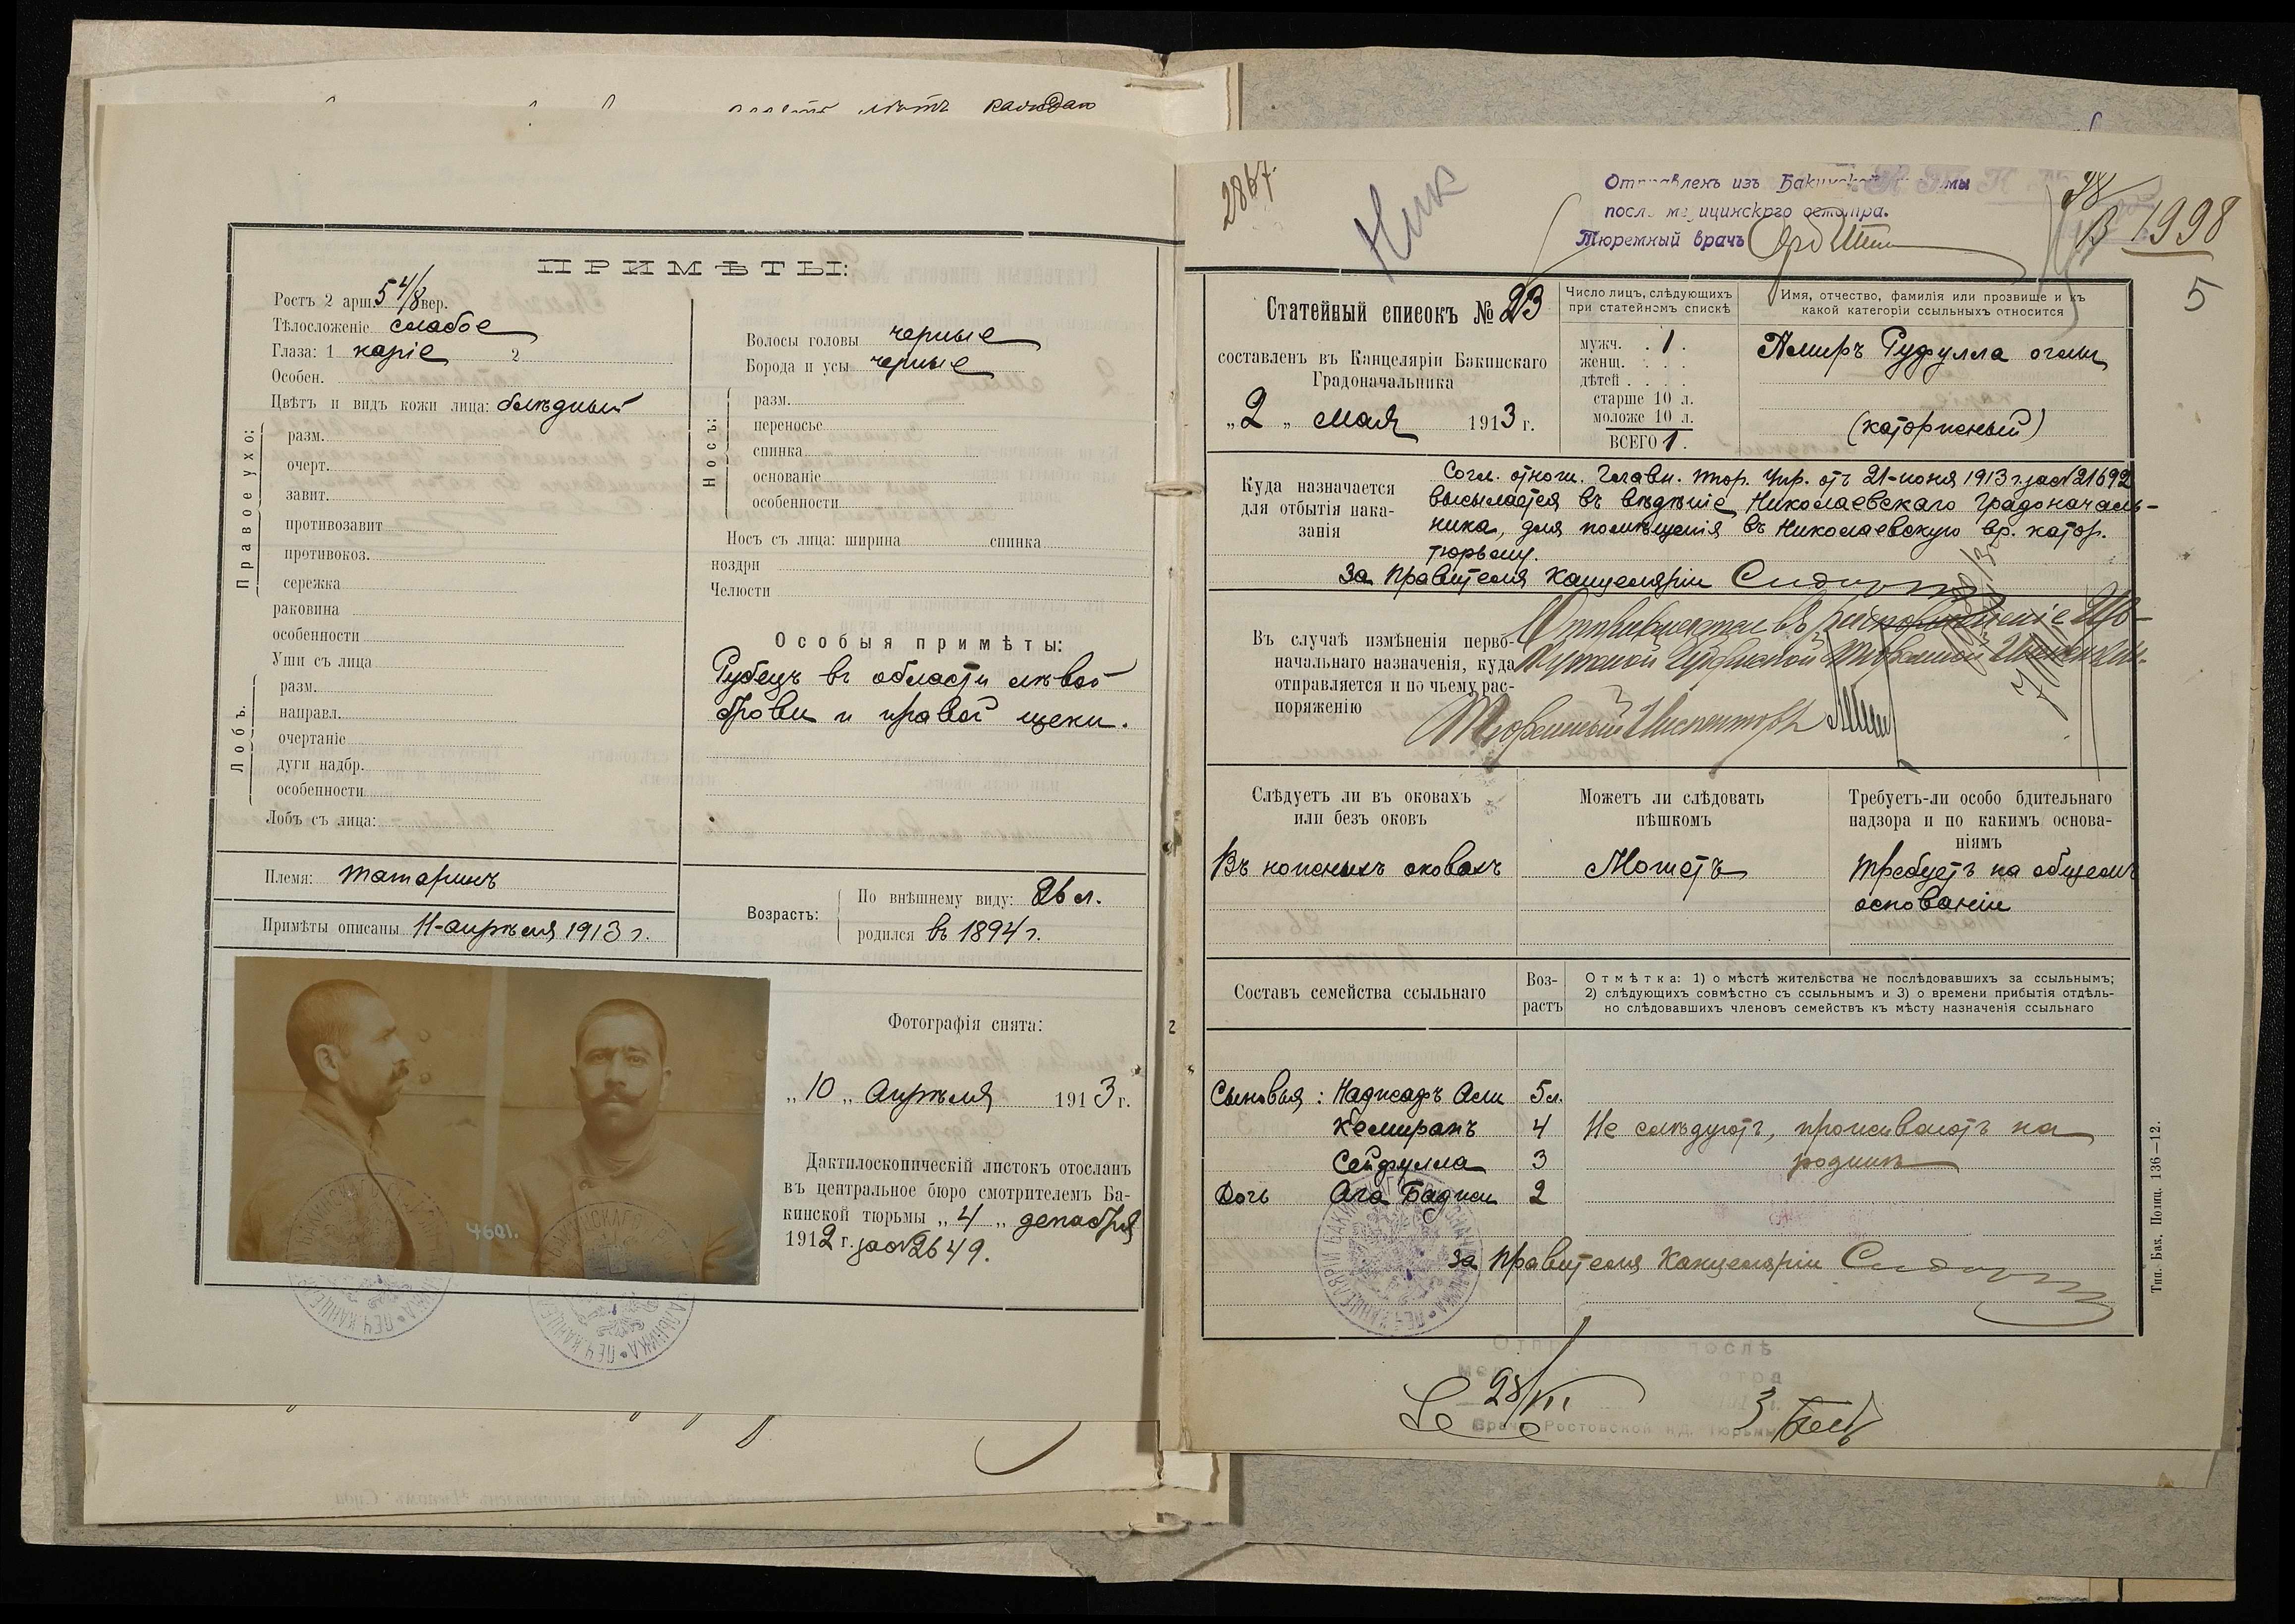 ПРИМѢТЫ:
Ростъ 2 арш. 5 4/8 вер.
Тѣлосложеніе слабое
Глаза: 1 каріе 2
Особен.
Цвѣтъ и видъ кожи лица: блѣдный
Правое ухо:
разм.
очерт.
завит.
противозавит
противокоз.
сережка
раковина
особенности
Уши съ лица
Лобъ.
разм.
направл.
очертаніе
дуги надбр.
особенности
Лобъ съ лица:
Волосы головы черные
Борода и усы черные
Носъ:
разм.
переносье
спинка
основаніе
особенности
Носъ съ лица: ширина спинка
ноздри
Челюсти
Особыя примѣты:
Рубецъ въ области лѣвой
брови и правой щеки.
Племя: татаринъ
Примѣты описаны 11-апрѣля 1913 г.
Возрастъ:
По внѣшнему виду: 26 л.
родился въ 1894 г.
4601.
Фотографія снята:
„10„ Апрѣля 1913 г.
Дактилоскопическій листокъ отосланъ
въ центральное бюро смотрителемъ Ба-
кинской тюрьмы „4„ декабря
1912 г. за № 2649.
2867
Ник
Отправленъ изъ Бакинской
послѣ медицинскаго осмотра.
Тюремный врачъ
1998
5
Статейный списокъ № 23
составленъ въ Канцеляріи Бакинскаго
Градоначальника
„2„ мая 1913 г.
Число лицъ, слѣдующихъ
при статейномъ спискѣ
мужч. . 1 .
женщ. . . .
дѣтей . . . .
старше 10 л.
моложе 10 л.
ВСЕГО 1.
Имя, отчество, фамилія или прозвище и къ
какой категоріи ссыльныхъ относится
Амиръ Руфулла оглы
(каторжный)
Куда назначается
для отбытія нака-
занія
Согл. отнош. Главн. тюр. Упр. отъ 21-июня 1913 г. за № 21692
высылается въ вѣдѣніе Николаевскаго Градоначаль-
ника, для помѣщенія въ Николаевскую вр. катор.
тюрьму.
За Правителя Канцеляріи
Въ случаѣ измѣненія перво-
начальнаго назначенія, куда
отправляется и по чьему рас-
поряженію
Отправляется въ распоряженіе
Губернской Тюремной
Тюремный Инспекторъ
Слѣдуетъ ли въ оковахъ
или безъ оковъ
Въ ножныхъ оковахъ
Можетъ ли слѣдовать
пѣшкомъ
Можетъ
Требуетъ-ли особо бдительнаго
надзора и по какимъ основа-
ніямъ
Требуетъ на общемъ
основаніи
Составъ семейства ссыльнаго
Воз-
растъ
Отмѣтка: 1) о мѣстѣ жительства не послѣдовавшихъ за ссыльнымъ;
2) слѣдующихъ совмѣстно съ ссыльнымъ и 3) о времени прибытія отдѣль-
но слѣдовавшихъ членовъ семействъ къ мѣсту назначенія ссыльнаго
Сыновья: Наджафъ Али 5 л.
Кемиранъ 4 Не слѣдуютъ, проживаютъ на
Сейфулла 3 родинѣ
Дочь Ага Баджи 2
За Правителя Канцеляріи
Тип. Бак. Полиц. 136—12.
28/VII
Врачъ Ростовской н/Д. тюрьмы